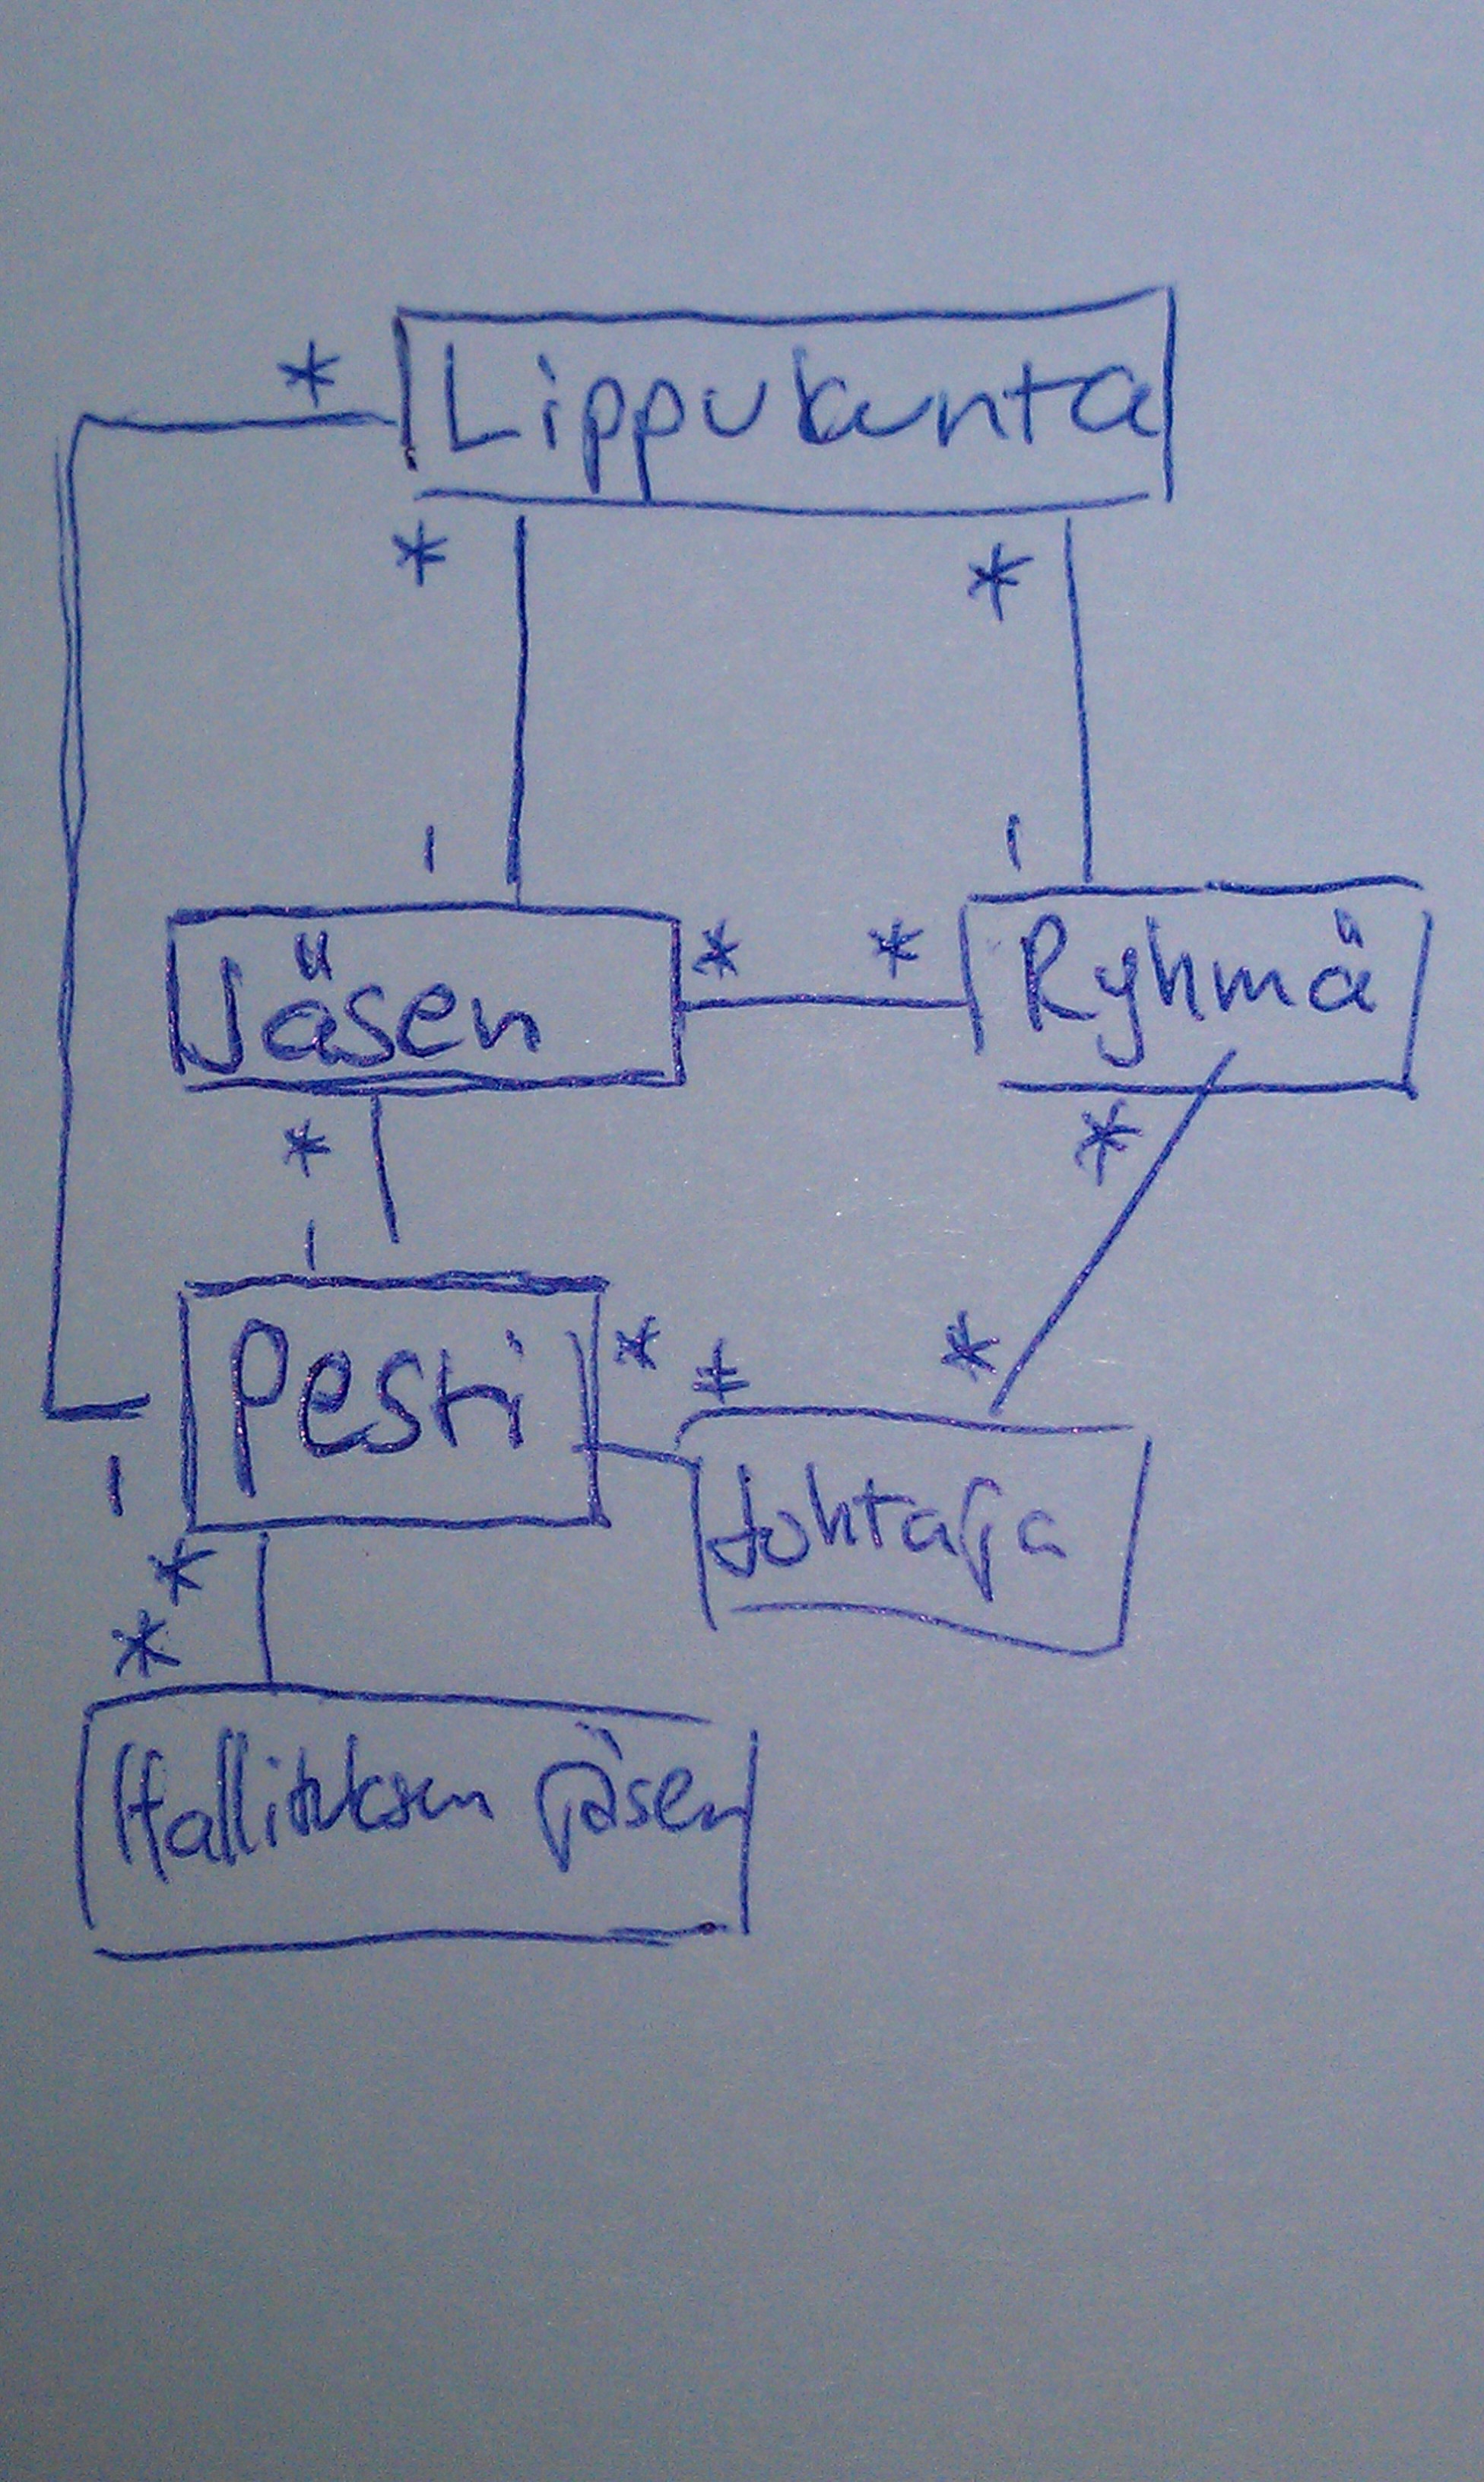 *
Lippukunta
*
*
1
1
Jäsen
*
*
Ryhmä
*
*
1
Pesti
*
*
*
1
Johtaja
*
*
Hallituksen jäsen